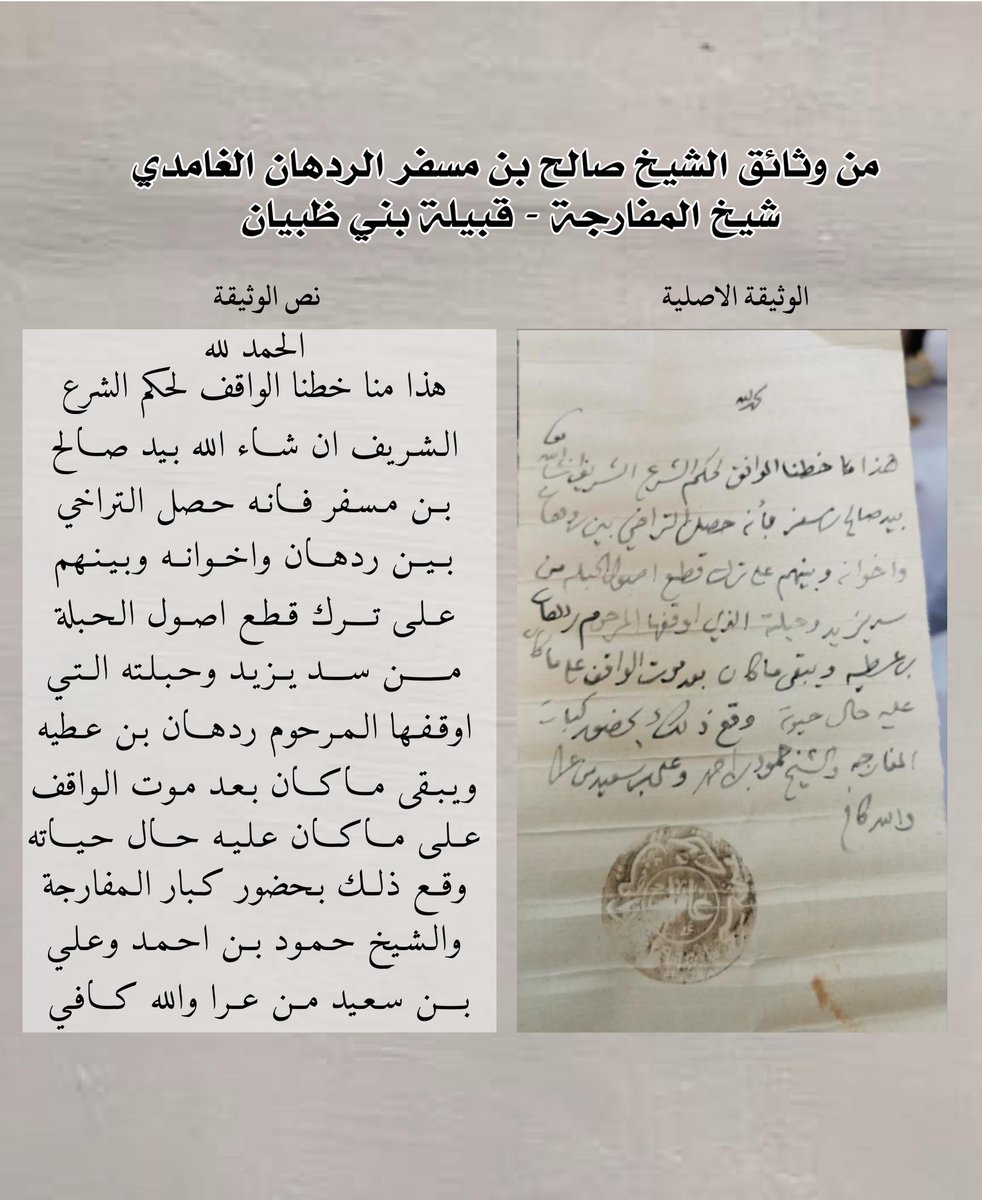 من وثائق الشيخ صالح بن مسفر الردهان الغامدي
شيخ المفارجة - قبيلة بني ظبيان
الوثيقة الاصلية
نص الوثيقة
الحمد لله
هذا ما خطنا الواقف لحكم الشرع الشريف انشاالله
بيد صالح بن مسفر فأنه حصل التراخي بين ردهان
واخوانه وبينهم على ترك قطع اصول الحبله من
سد يزيد وحبلته الذي اوقفها المرحوم ردهان
بن عطيه ويبقى ماكان بعد موت الواقف على ماكان
عليه حال حيوته وقع ذلك بحضور كبار
المفارجه والشيخ حمود بن احمد وعلي بن سعيد من عرا
والله كافي
الحمد لله
هذا منا خطنا الواقف لحكم الشرع
الشريف ان شاء الله بيد صالح
بن مسفر فانه حصل التراخي
بين ردهان واخوانه وبينهم
على ترك قطع اصول الحبلة
من سد يزيد وحبلته التي
اوقفها المرحوم ردهان بن عطيه
ويبقى ماكان بعد موت الواقف
على ماكان عليه حال حياته
وقع ذلك بحضور كبار المفارجة
والشيخ حمود بن احمد وعلي
بن سعيد من عرا والله كافي